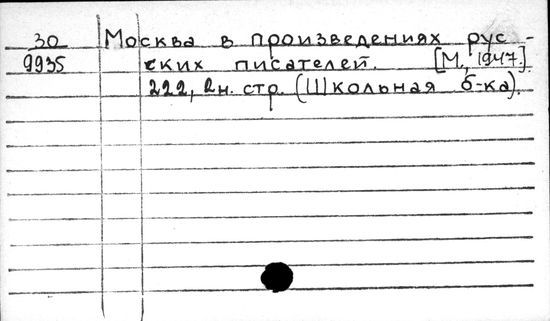 30 Москва в произведениях рус-
9935 ских писателей. [М., 1947.]
222, 2н. стр. (Школьная б-ка).